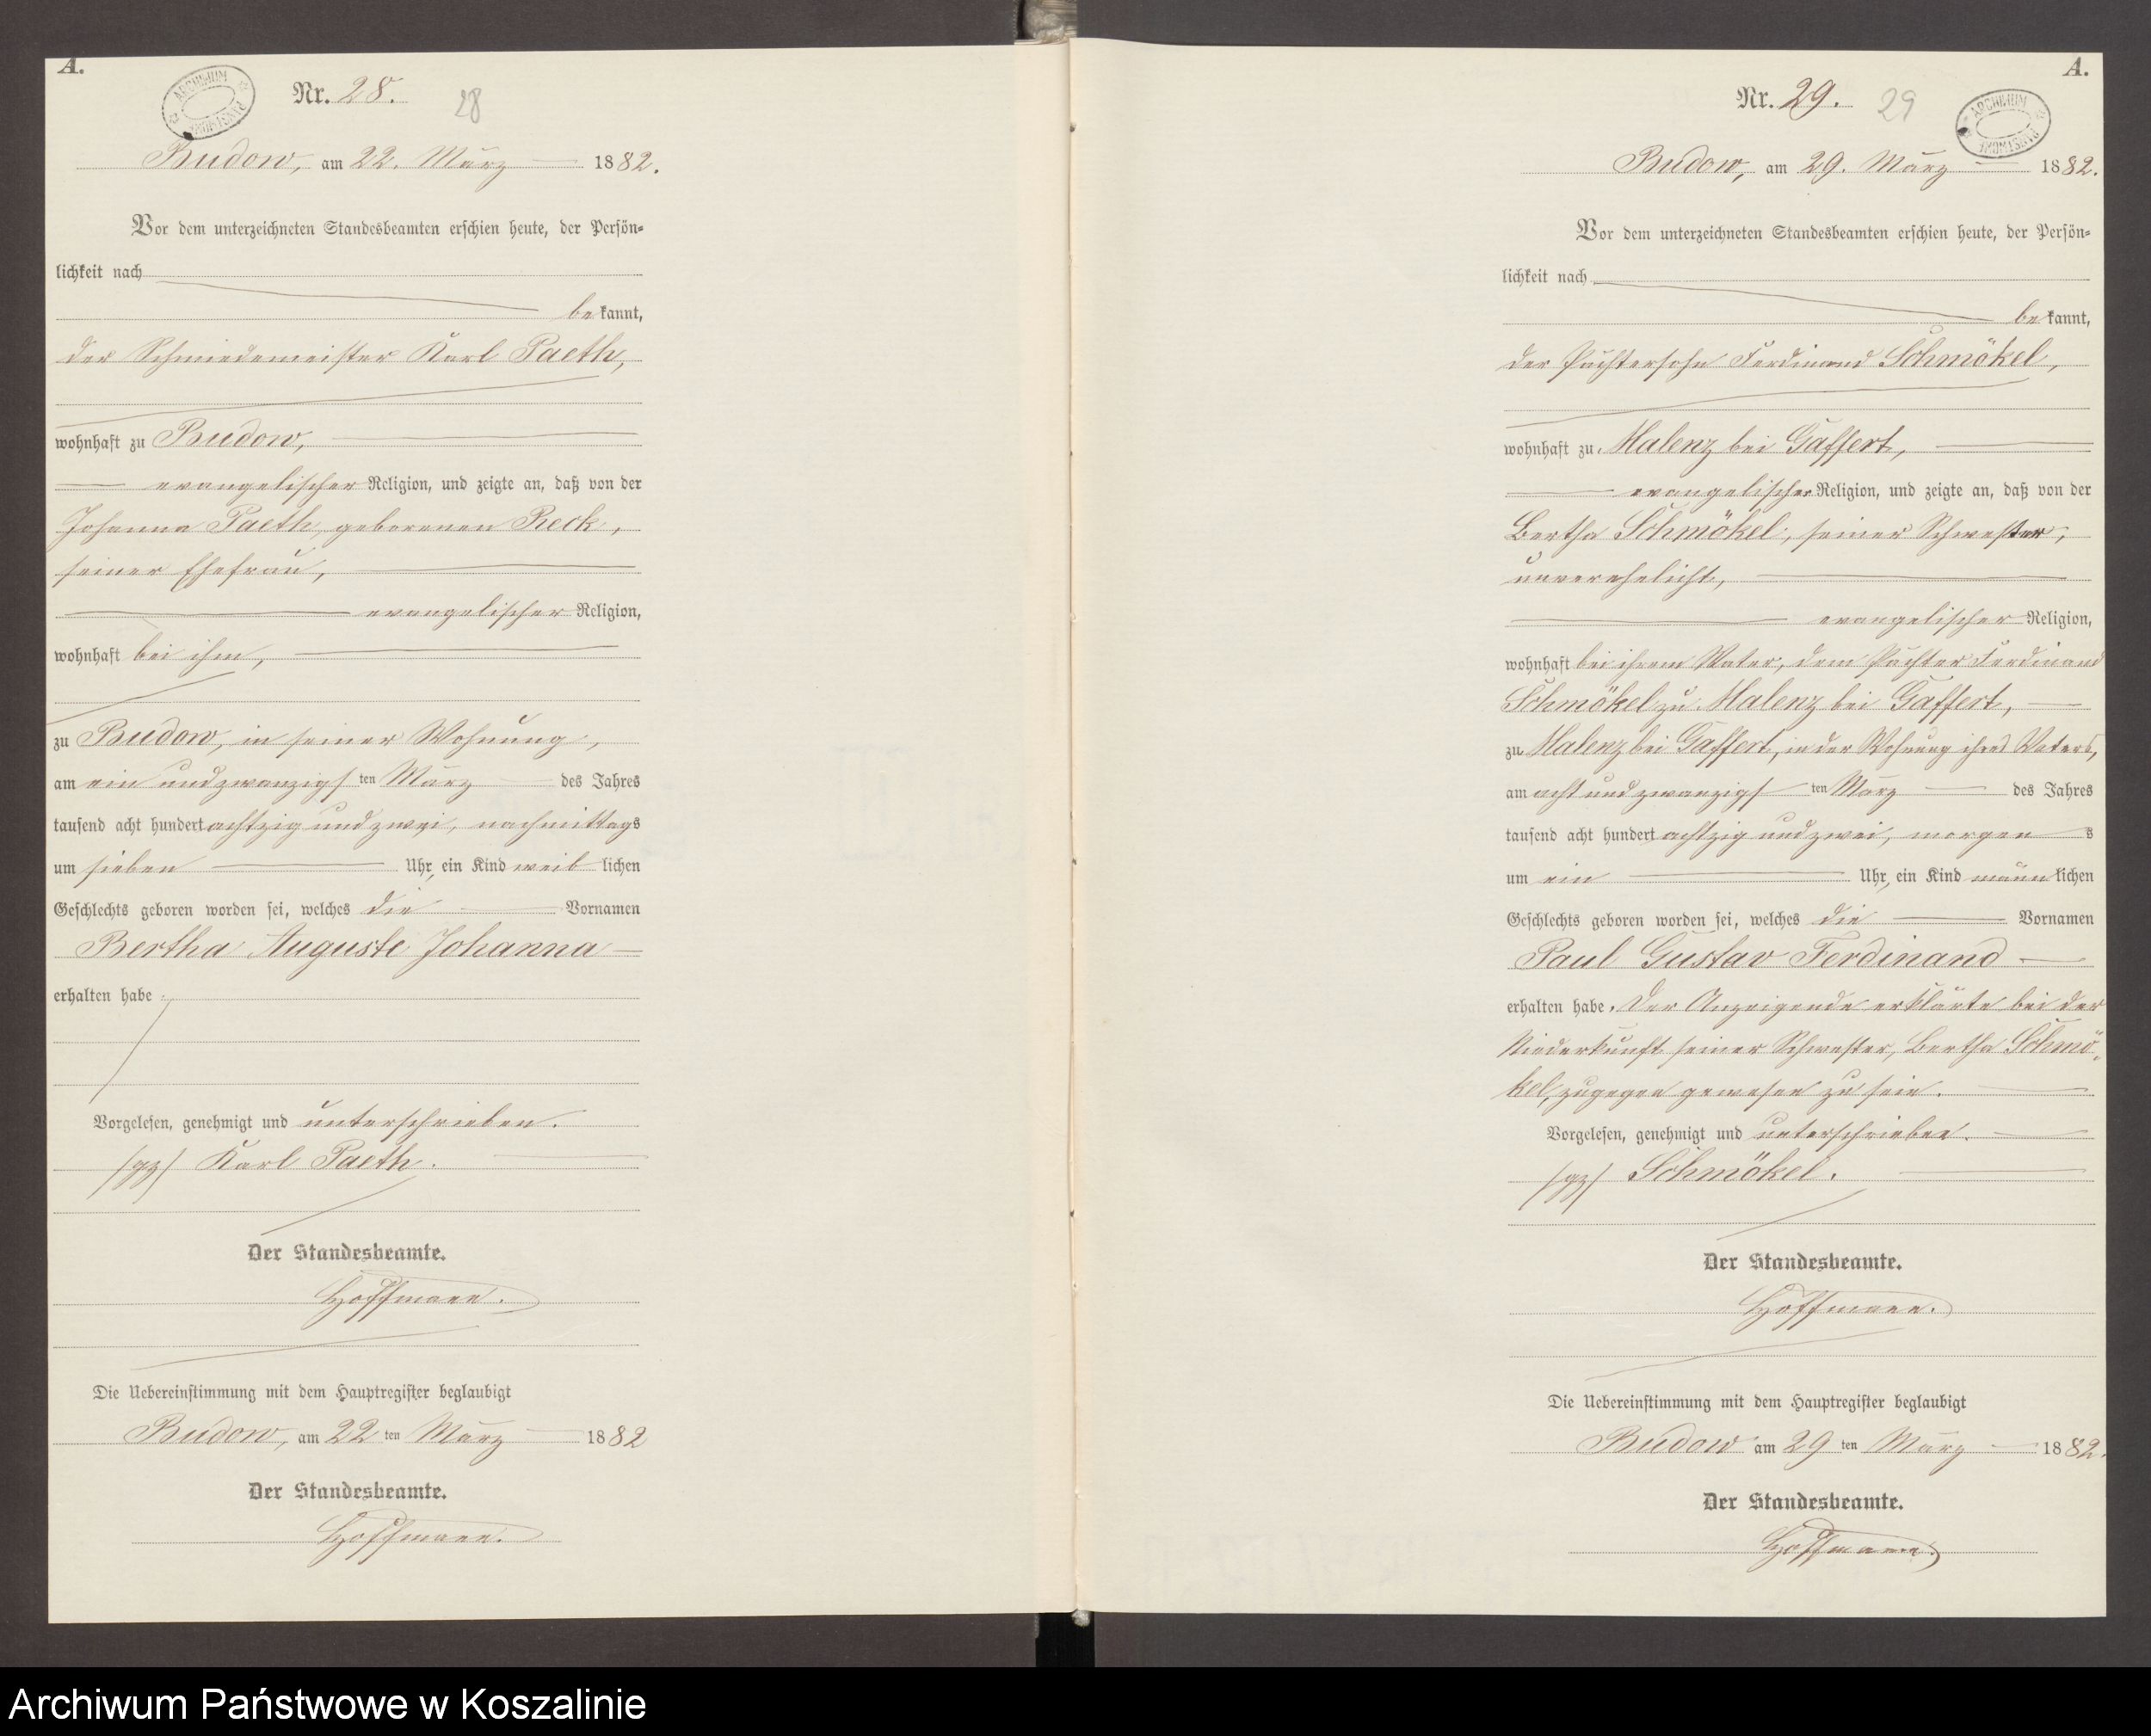 A.
ARCHIWUM PAŃSTWOWE
Nr. 28.
28
Budow, am 22. März 1882.
Vor dem unterzeichneten Standesbeamten erschien heute, der Persön-
lichkeit nach
bekannt,
der Schmiedemeister Karl Paeth,
wohnhaft zu Budow,
evangelischer Religion, und zeigte an, daß von der
Johanna Paeth, geborenen Reck,
seiner Ehefrau,
evangelischer Religion,
wohnhaft bei ihm,
zu Budow, in seiner Wohnung,
am ein und zwanzigsten März des Jahres
tausend acht hundert achtzig und zwei, nachmittags
um sieben Uhr, ein Kind weiblichen
Geschlechts geboren worden sei, welches die Vornamen
Bertha Auguste Johanna
erhalten habe.
Vorgelesen, genehmigt und unterschrieben.
/gz/ Karl Paeth.
Der Standesbeamte.
Hoffmann.
Die Uebereinstimmung mit dem Hauptregister beglaubigt
Budow, am 22ten März 1882
Der Standesbeamte.
Hoffmann.
A.
ARCHIWUM PAŃSTWOWE
Nr. 29.
29
Budow, am 29. März 1882.
Vor dem unterzeichneten Standesbeamten erschien heute, der Persön-
lichkeit nach
bekannt,
der Pächtersohn Ferdinand Schmökel,
wohnhaft zu Malenz bei Gaffert,
evangelischer Religion, und zeigte an, daß von der
Bertha Schmökel, seiner Schwester,
unverehelicht,
evangelischer Religion,
wohnhaft bei ihrem Vater, dem Pächter Ferdinand
Schmökel zu Malenz bei Gaffert,
zu Malenz bei Gaffert, in der Wohnung ihres Vaters,
am acht und zwanzigsten März des Jahres
tausend acht hundert achtzig und zwei, morgens
um ein Uhr, ein Kind männlichen
Geschlechts geboren worden sei, welches die Vornamen
Paul Gustav Ferdinand
erhalten habe. Der Anzeigende erklärte bei der
Niederkunft seiner Schwester, Bertha Schmö-
kel, zugegen gewesen zu sein.
Vorgelesen, genehmigt und unterschrieben.
/gz/ Schmökel.
Der Standesbeamte.
Hoffmann.
Die Uebereinstimmung mit dem Hauptregister beglaubigt
Budow am 29ten März 1882.
Der Standesbeamte.
Hoffmann.
Archiwum Państwowe w Koszalinie